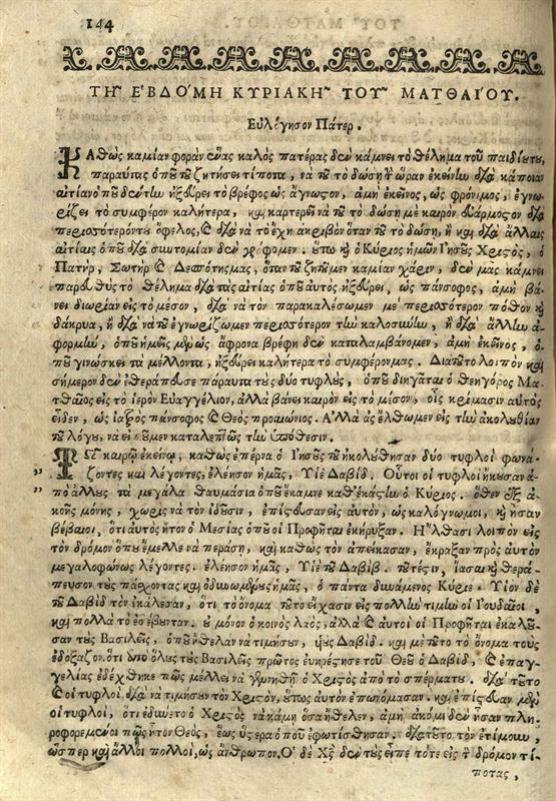 144
ΤΗ͂ ἙΒΔΌΜΗ ΚΥΡΙΑΚΗ͂ ΤΟΥ͂ ΜΑΤΘΑΊΟΥ.
Εὐλόγησον Πάτερ.
ΚΑθὼς καμίαν φορὰν ἕνας καλὸς πατέρας δὲν κάμνει τὸ θέλημα τοῦ παιδίου του,
παρευθὺς ὁποῦ τοῦ ζητήσει τίποτες, νὰ τοῦ τὸ δώσῃ τὴν ὥραν ἐκείνην διὰ κάποιαν
αἰτίαν ὁποῦ δὲν τὴν ἠξεύρει τὸ βρέφος ὡς ἄγνωστον, ἀμὴ ἐκεῖνος, ὡς φρόνιμος, ἐγνω-
ρίζει τὸ συμφέρον καλήτερα, καὶ καρτερεῖ νὰ τοῦ τὸ δώσῃ μὲ καιρὸν εὐάρμοστον διὰ
περισσότερόν του ὄφελος, καὶ διὰ νὰ τὸ ἔχῃ ἀκριβὸν ὅταν τοῦ τὸ δώσῃ, ἢ καὶ δι' ἄλλαις
αἰτίαις ὁποῦ διὰ συντομίαν δὲν γράφομεν. οὕτω καὶ ὁ Κύριος ἡμῶν Ἰησοῦς Χριστὸς, ὁ
Πατὴρ, Σωτὴρ καὶ Δεσπότης μας, ὅταν τοῦ ζητοῦμεν καμίαν χάριν, δὲν μᾶς κάμνει
παρευθὺς τὸ θέλημα διὰ ταῖς αἰτίαις ὁποῦ αὐτὸς ἠξεύρει, ὡς πάνσοφος, ἀμὴ βά-
νει διωρίαν εἰς τὸ μέσον, διὰ νὰ τὸν παρακαλέσωμεν μὲ περισσότερον πόθον καὶ
δάκρυα, ἢ διὰ νὰ τοῦ ἐγνωρίζωμεν περισσότερον τὴν καλοσύνην, ἢ δι' ἄλλην ἀ-
φορμὴν, ὁποῦ ἡμεῖς ὡς ἄφρονα βρέφη δὲν καταλαμβάνομεν, ἀμὴ ἐκεῖνος, ὁ-
ποῦ γινώσκει τὰ μέλλοντα, ἠξεύρει καλήτερα τὸ συμφέρον μας. Διὰ τοῦτο λοιπὸν καὶ
σήμερον δὲν ἐθεράπευσε πάραυτα τοὺς δύο τυφλοὺς, ὁποῦ διηγᾶται ὁ θεηγόρος Ματ-
θαῖος εἰς τὸ ἱερὸν Εὐαγγέλιον, ἀλλὰ βάνει καιρὸν εἰς τὸ μέσον, οἷς κρίμασιν αὐτὸς
εἶδεν, ὡς ἰατρὸς πάνσοφος καὶ Θεὸς προαιώνιος. Ἀλλὰ ἂς ἔλθωμεν εἰς τὴν ἀκολουθίαν
τοῦ λόγου, νὰ εἰποῦμεν καταλεπτῶς τὴν ὑπόθεσιν.
Τῷ καιρῷ ἐκείνῳ, καθὼς ἐπέρνα ὁ Ἰησοῦς τοῦ ἠκολούθησαν δύο τυφλοὶ φωνά-
ζοντες καὶ λέγοντες, ἐλέησον ἡμᾶς, Υἱὲ Δαβίδ. Οὗτοι οἱ τυφλοὶ ἤκουσαν ἀ-
πὸ ἄλλους τὰ μεγάλα θαυμάσια ὁποῦ ἔκαμνε καθ' ἑκάστην ὁ Κύριος. ὅθεν ἐξ ἀ-
κοῆς μόνης, χωρὶς νὰ τὸν ἰδοῦσιν, ἐπίστευσαν εἰς αὐτὸν, ὡς καλόγνωμοι, καὶ ἦσαν
βέβαιοι, ὅτι αὐτὸς ἦτον ὁ Μεσίας ὁποῦ οἱ Προφῆται ἐκήρυξαν. Ἤλθασι λοιπὸν εἰς
τὸν δρόμον ὁποῦ ἔμελλε νὰ περάσῃ, καὶ καθὼς τὸν ἀπείκασαν, ἔκραξαν πρὸς αὐτὸν
μεγαλοφώνως λέγοντες. ἐλέησον ἡμᾶς, Υἱὲ τοῦ Δαβίδ. τουτέστιν, ἴασαι καὶ θερά-
πευσον τοὺς πάσχοντας καὶ ὀδυνωμένους ἡμᾶς, ὁ πάντα δυνάμενος Κύριε. Υἱὸν δὲ
τοῦ Δαβὶδ τὸν ἐκάλεσαν, ὅτι τὸ ὄνομα τοῦτο εἴχασιν εἰς πολλὴν τιμὴν οἱ Ἰουδαῖοι,
καὶ πολλὰ τὸ ἐσέβουνταν. οὐ μόνον ὁ κοινὸς λαὸς, ἀλλὰ καὶ αὐτοὶ οἱ Προφῆται ἐκάλου-
σαν τοὺς Βασιλεῖς, ὁποῦ ἤθελαν νὰ τιμήσουν, υἱοὺς Δαβίδ. καὶ μὲ τοῦτο τὸ ὄνομα τοὺς
ἐδόξαζον. ὅτι ἀπὸ ὅλους τοὺς Βασιλεῖς πρῶτος εὐηρέστησε τοῦ Θεοῦ ὁ Δαβὶδ, καὶ ἐπαγ-
γελίας ἐδέχθηκε πῶς μέλλει νὰ γεννηθῇ ὁ Χριστὸς ἀπὸ τὸ σπέρμα του. διὰ τοῦτο
καὶ οἱ τυφλοὶ διὰ νὰ τιμήσουν τὸν Χριστὸν, οὕτως αὐτὸν ἐπωνόμασαν. καὶ ἐπίστευαν μὲν
οἱ τυφλοὶ, ὅτι ἐδύνετο ὁ Χριστὸς νὰ κάμῃ ὅσα ἤθελεν, ἀμὴ ἀκόμι δὲν ἦσαν πλη-
ροφορεμένοι πῶς ἦτον Θεὸς, ἕως ὕστερα ὁποῦ ἐφωτίσθησαν. διὰ τοῦτο τὸν ἐτίμουν,
ὥσπερ καὶ ἄλλοι πολλοὶ, ὡς ἄνθρωπον. Ὁ δὲ Χς δὲν τοὺς εἶπε τότε εἰς τὸν δρόμον τί-
ποτας,